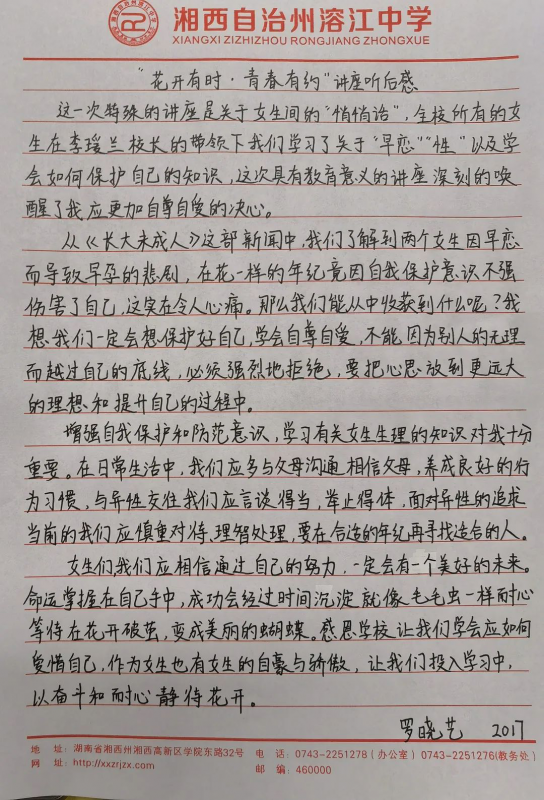 湘西自治州溶江中学
XIANGXI ZIZHIZHOU RONGJIANG ZHONGXUE
“花开有时·青春有约”讲座听后感
这一次特殊的讲座是关于女生间的“悄悄话”，全校所有的女
生在李瑶兰校长的带领下我们学习了关于“早恋”“性”以及学
会如何保护自己的知识，这次具有教育意义的讲座深刻的唤
醒了我应更加自尊自爱的决心。
从《长大未成人》这部新闻中，我们了解到两个女生因早恋
而导致早孕的悲剧，在花一样的年纪竟因自我保护意识不强
伤害了自己，这实在令人心痛。那么我们能从中收获到什么呢？我
想我们一定会想保护好自己，学会自尊自爱，不能因为别人的无理
而越过自己的底线，必须强烈地拒绝，要把心思放到更远大
的理想和提升自己的过程中。
增强自我保护和防范意识，学习有关女生生理的知识对我十分
重要。在日常生活中，我们应多与父母沟通，相信父母，养成良好的行
为习惯，与异性交往我们应言谈得当，举止得体，面对异性的追求
当前的我们应慎重对待，理智处理，要在合适的年纪再寻找适合的人。
女生们，我们应相信通过自己的努力，一定会有一个美好的未来。
命运掌握在自己手中，成功会经过时间沉淀，就像毛毛虫一样耐心
等待在花开破茧，变成美丽的蝴蝶。感恩学校让我们学会应如何
爱惜自己，作为女生也有女生的自豪与骄傲，让我们投入学习中，
以奋斗和耐心静待花开。
罗晓艺 2017
地 址：湖南省湘西州湘西高新区学院东路32号 电 话：0743-2251278（办公室）0743-2251276(教务处)
网 址：http://xxzrjzx.com 邮 编：460000